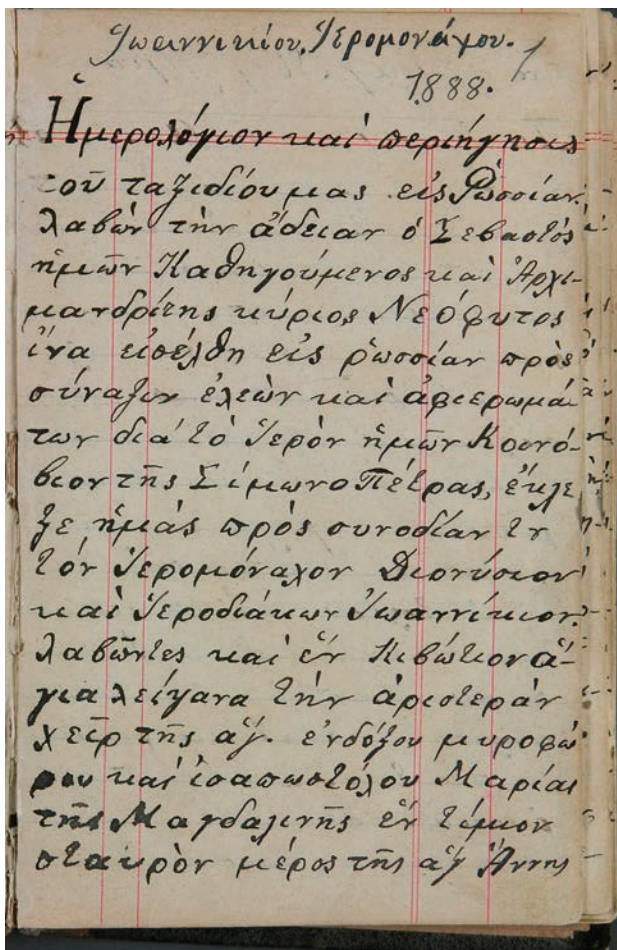 Ἰωαννικίου, Ἱερομονάχου.
1888.
Ἡμερολόγιον καὶ περιήγησις
τοῦ ταξιδίου μας εἰς Ρωσσίαν.
λαβὼν τὴν ἄδειαν ὁ Σεβαστὸς
ἡμῶν Καθηγούμενος καὶ Ἀρχι-
μανδρίτης κύριος Νεόφυτος
ἵνα εἰσέλθη εἰς ῥωσσίαν πρὸς
σύναξιν ἐλεῶν καὶ ἀφιερωμά
των διὰ τὸ Ἱερὸν ἡμῶν Κοινό-
βιον τῆς ΣίμωνοΠέτρας, ἔκλε
ξε ἡμᾶς πρὸς συνοδίαν
τὸν Ἱερομόναχον Διονύσιον
καὶ Ἱεροδιάκων Ἰωαννίκιον.
λαβῶντες καὶ ἓν Κιβώτιον ἅ-
για λείψανα τὴν ἀριστερὰν
χεῖρ τῆς ἁγ. ἐνδόξου μυροφώ
ρου καὶ ἰσαπωστόλου Μαρίας
τῆς Μαγδαλινῆς ἓν τίμιον
σταυρὸν μέρος τῆς ἁγ Ἄννης